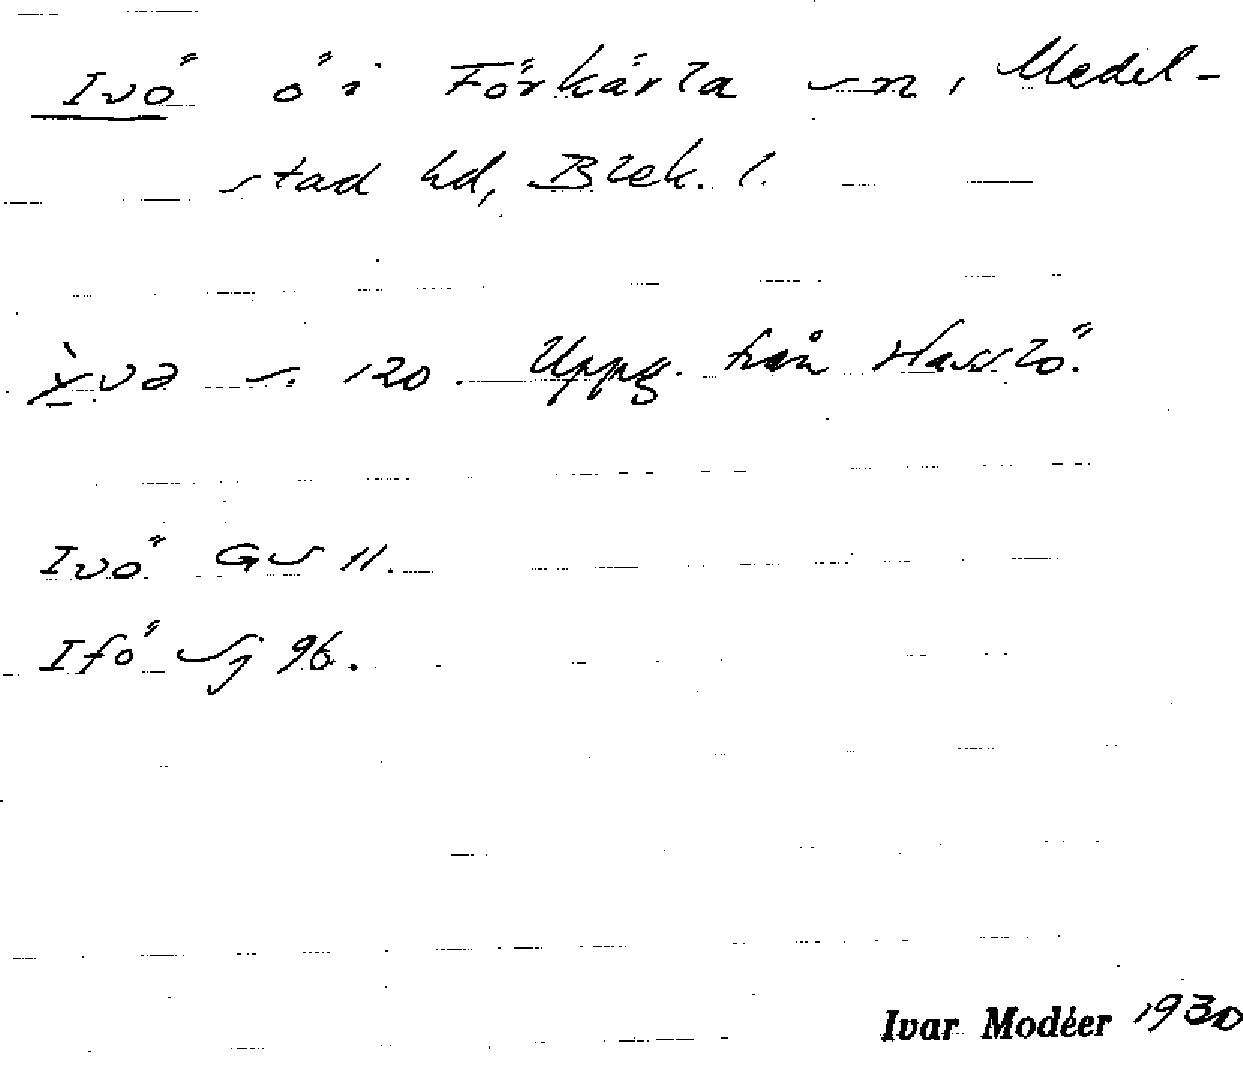 Ivö ö i Förkärla sn, Medel-
stad hd, Blek. l.
s. 120. Uppg. från Hasslö.
Ivö GS 11.
Ifö Sj 96.
Ivar Modéer 1930